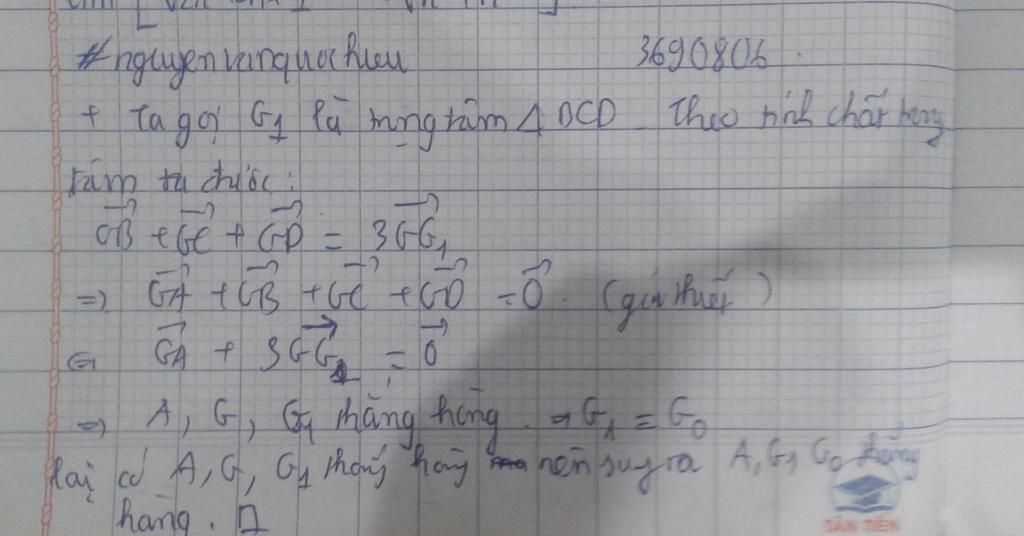 #nguyenvanquochieu 3690806
+ Ta gọi G₁ là trọng tâm Δ BCD. Theo tính chất trọng
tâm ta được:
GB + GC + GD = 3GG₁
=> GA + GB + GC + GD = 0. (giả thiết)
GA + 3GG₁ = 0
=> A, G, G₁ thẳng hàng. => G₁ = G₀
lại có A, G, G₁ thẳng hàng nên suy ra A, G, G₀ thẳng
hàng. □
TÂN TIẾN